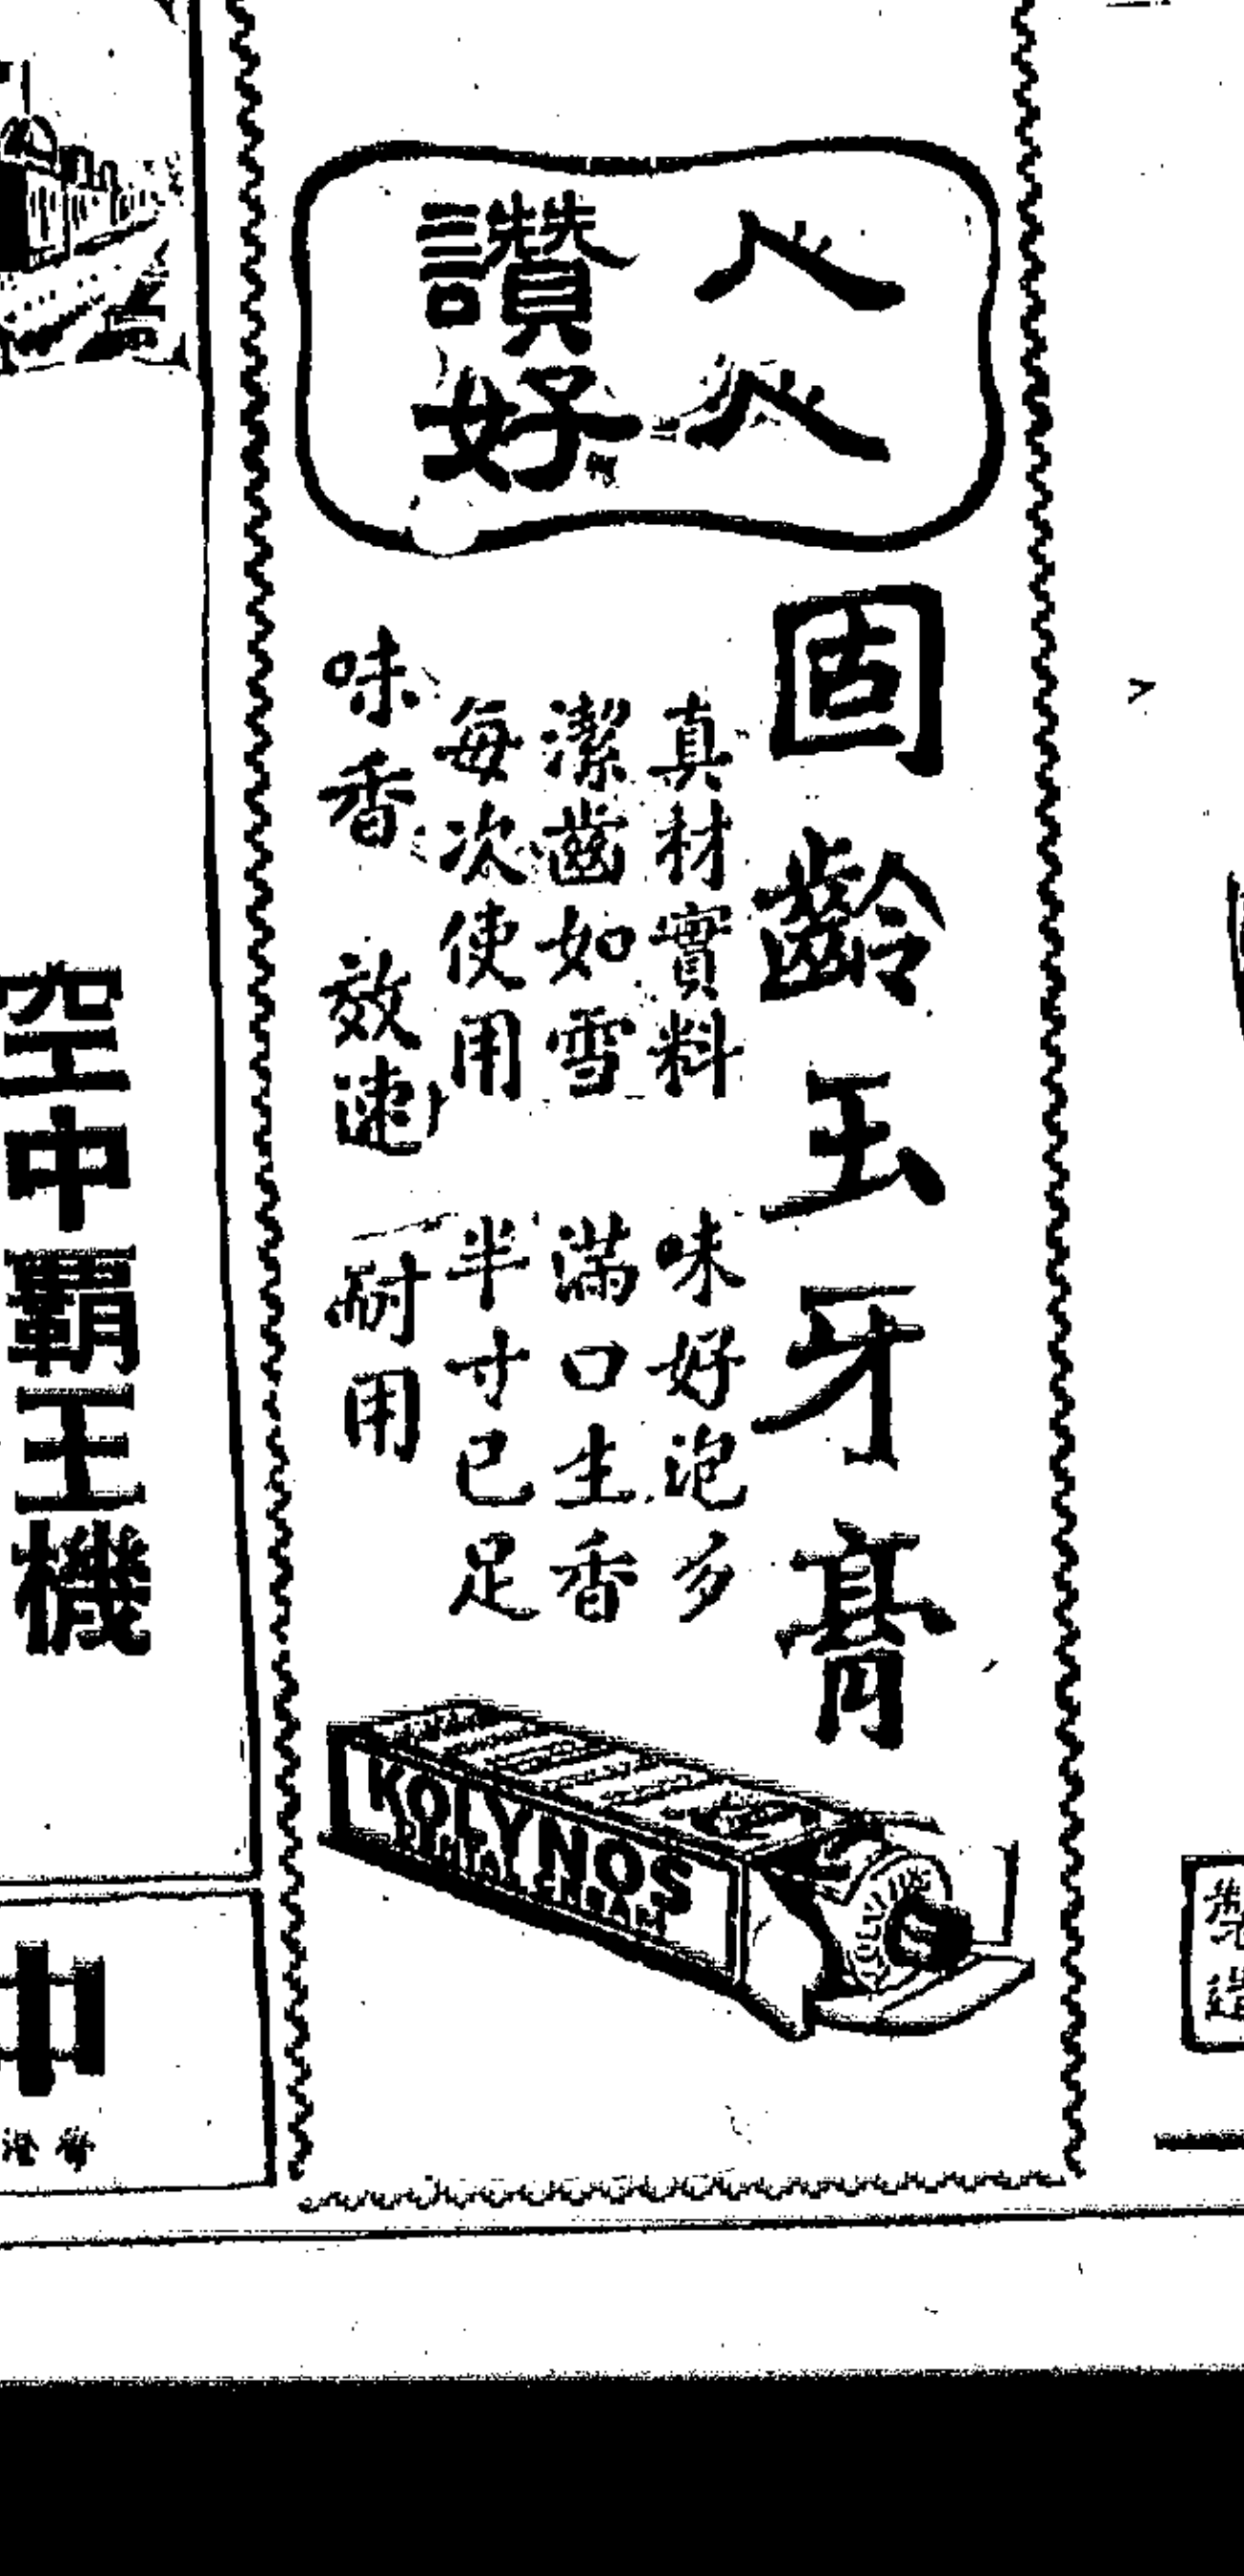 人人
讚好
固齡玉牙膏
真材實料 味好泡多
潔齒如雪 滿口生香
每次使用 半寸已足
味香 效速 耐用
KOLYNOS
DENTAL CREAM
KOLYNOS
空中霸王機
中